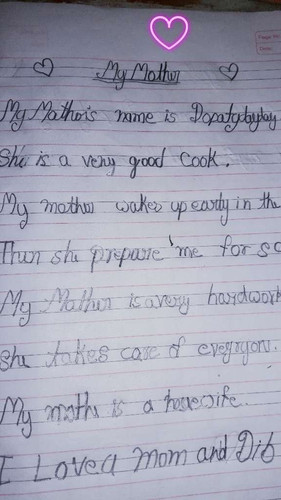 My Mother
My Mather's name is
She is a very good cook.
My mother wakes up early in the
Then she prepare me for sc
My Mather is a very hardwork
she takes care of everyyone.
My mothe is a housewife.
I Loved mom and Dib